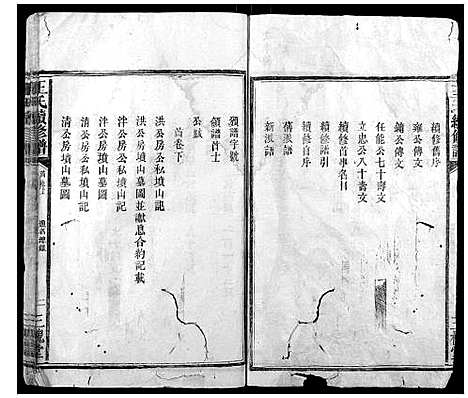 續修舊序
雍公傳文
鏽公傳文
任能公七十壽文
立忠公八十壽文
續修首事名目
續修譜引
續修首序
舊派語
新派語
領譜字號
領譜首士
公馱
首卷下
洪公房墳山墓圖並獻息合約記載
洪公房公私墳山記
泮公房公私墳山記
泮公房墳山墓圖
清公房公私墳山記
清公房墳山墓圖
王氏續修譜
三槐堂